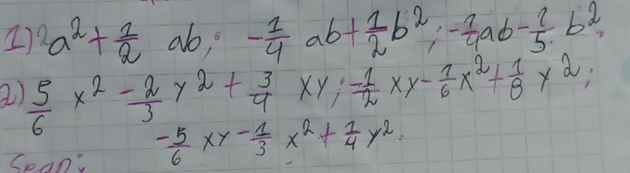 1) a² + 1/2 ab; -1/4 ab + 1/2 b²; -1/4 ab - 1/5 b².
2) 5/6 x² - 2/3 y² + 3/4 xy; -1/2 xy - 1/6 x² + 1/8 y²;
-5/6 xy - 1/3 x² + 1/4 y².